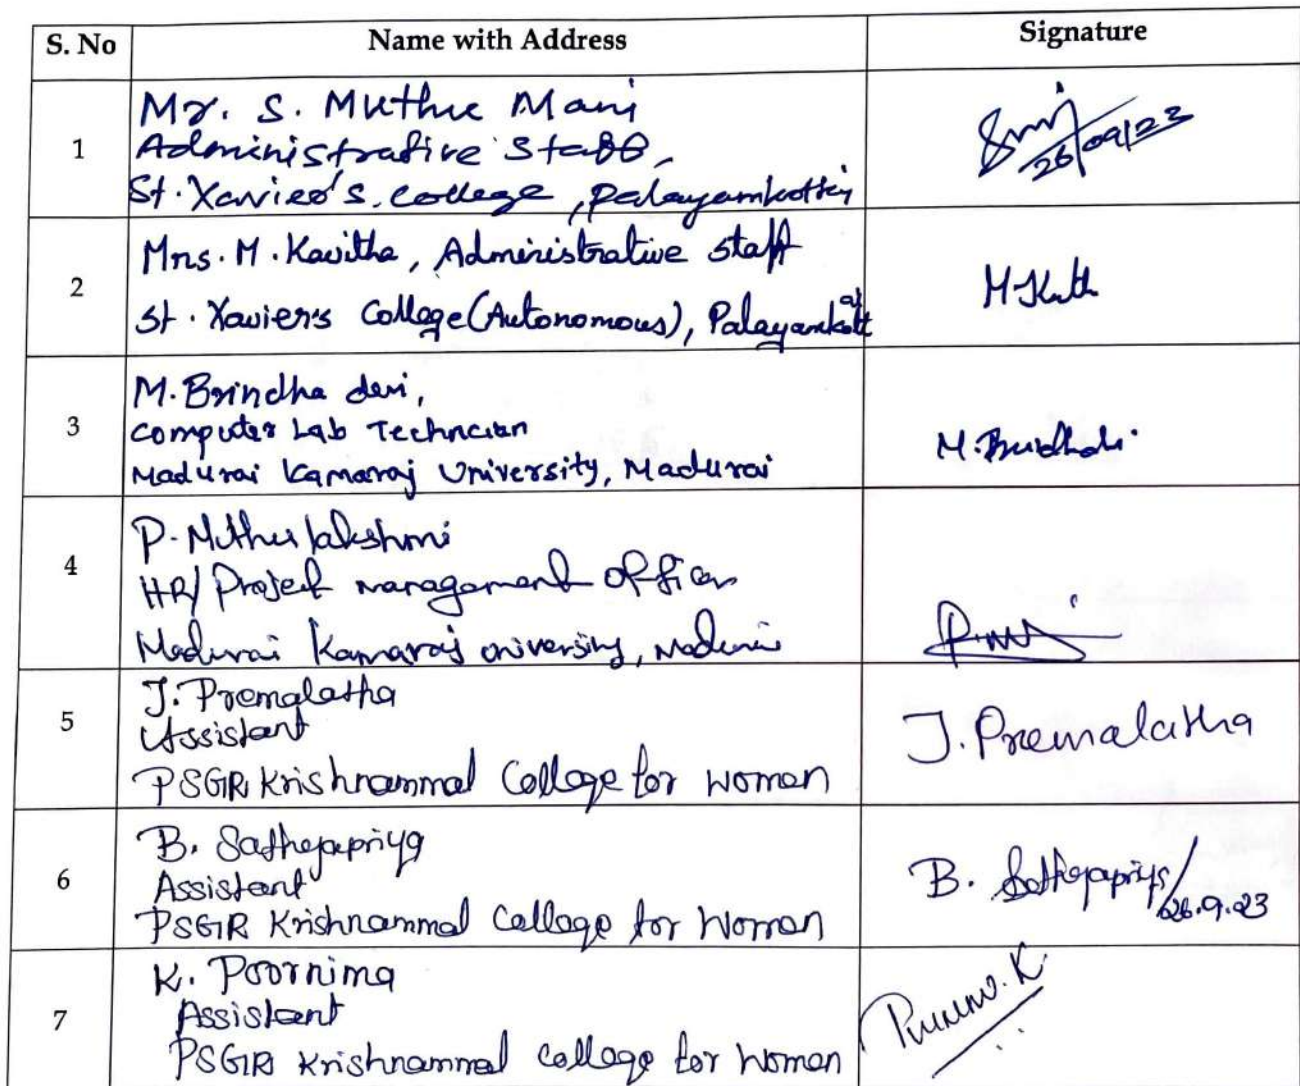 S. No Name with Address Signature
1
Mr. S. Muthu Mani
Administrative Staff,
St. Xavier's. College, Palayamkottai
26/09/23
2
Mrs. M. Kavitha, Administrative staff
St. Xavier's College (Autonomous), Palayamkottai
3
M. Brindha devi,
Computer Lab Techncian
Madurai Kamaraj University, Madurai
4
P. Muthu lakshmi
HR/ Project management officer
Madurai Kamaraj University, Madurai
5
J. Premalatha
Assistant
PSGR Krishnammal College for women
J. Premalatha
6
B. Sathyapriya
Assistant
PSGR Krishnammal College for Women
B. Sathyapriya
26.9.23
7
K. Poornima
Assistant
PSGR Krishnammal College for Women